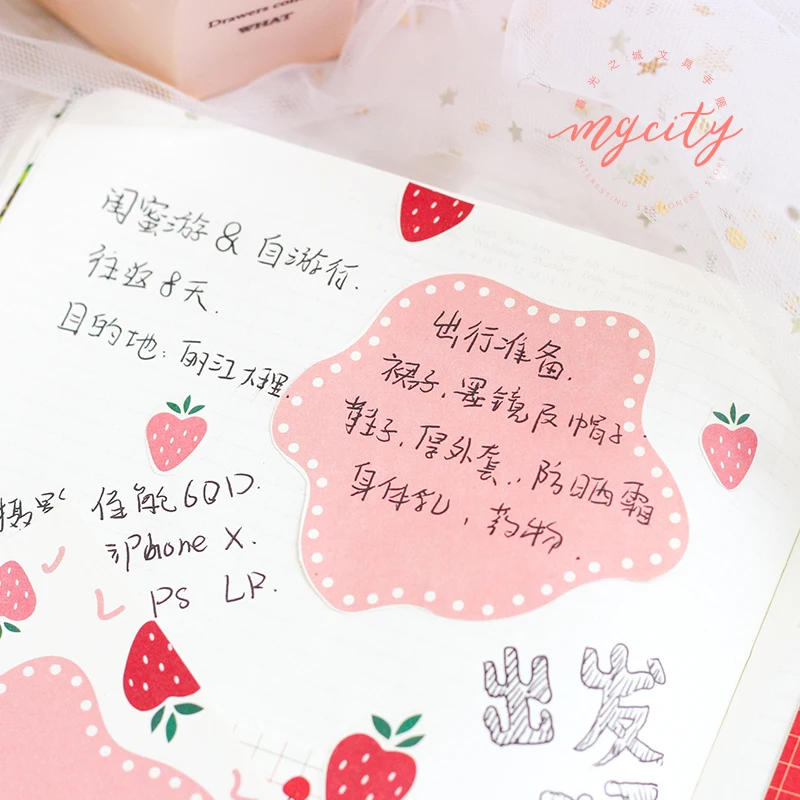 Drawers
WHAT
晨光之城文具手账
mgcity
INTERESTING STATIONERY STORE
闺蜜游 & 自游行.
往返8天.
目的地: 丽江大理.
出行准备.
裙子, 墨镜及帽子.
鞋子, 厚外套, 防晒霜
身体乳, 药物.
摄影 佳能60D.
iPhone X.
PS LR.
出发